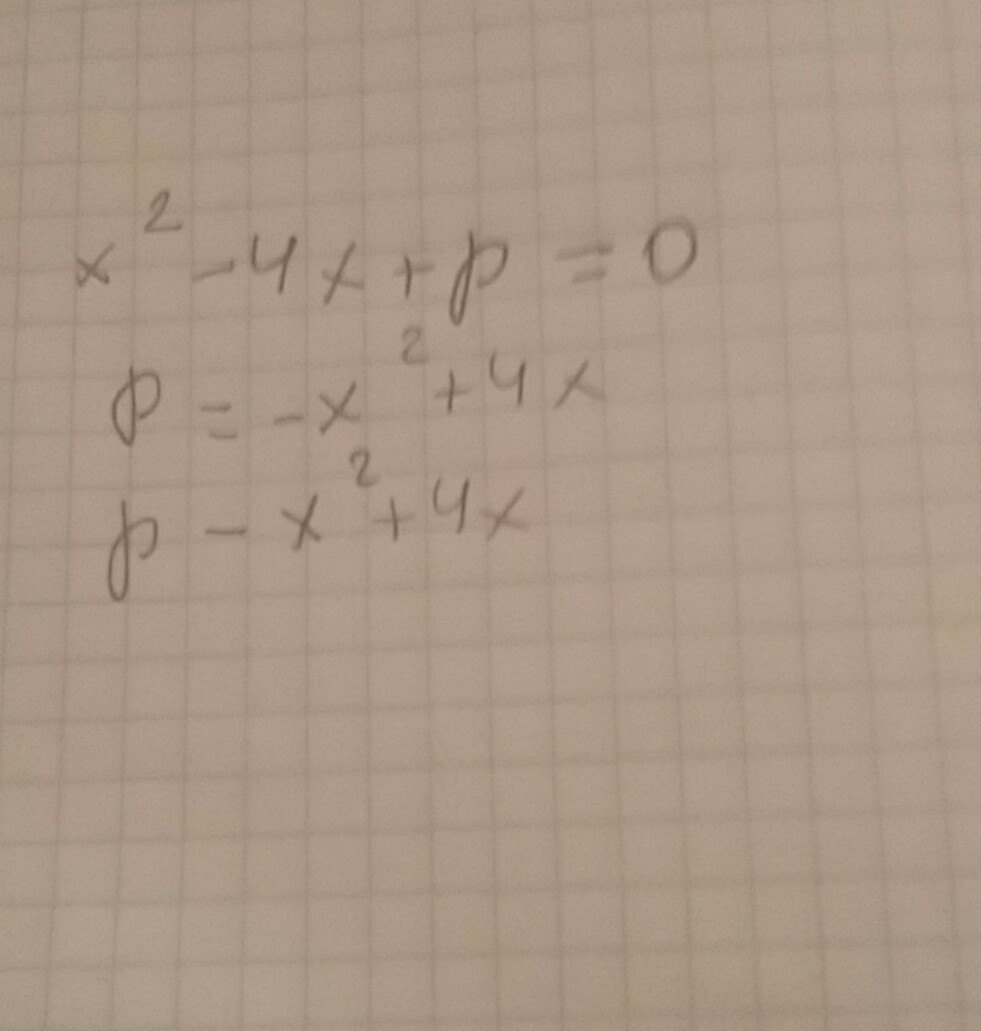 x² - 4x + p = 0
p = -x² + 4x
p - x² + 4x